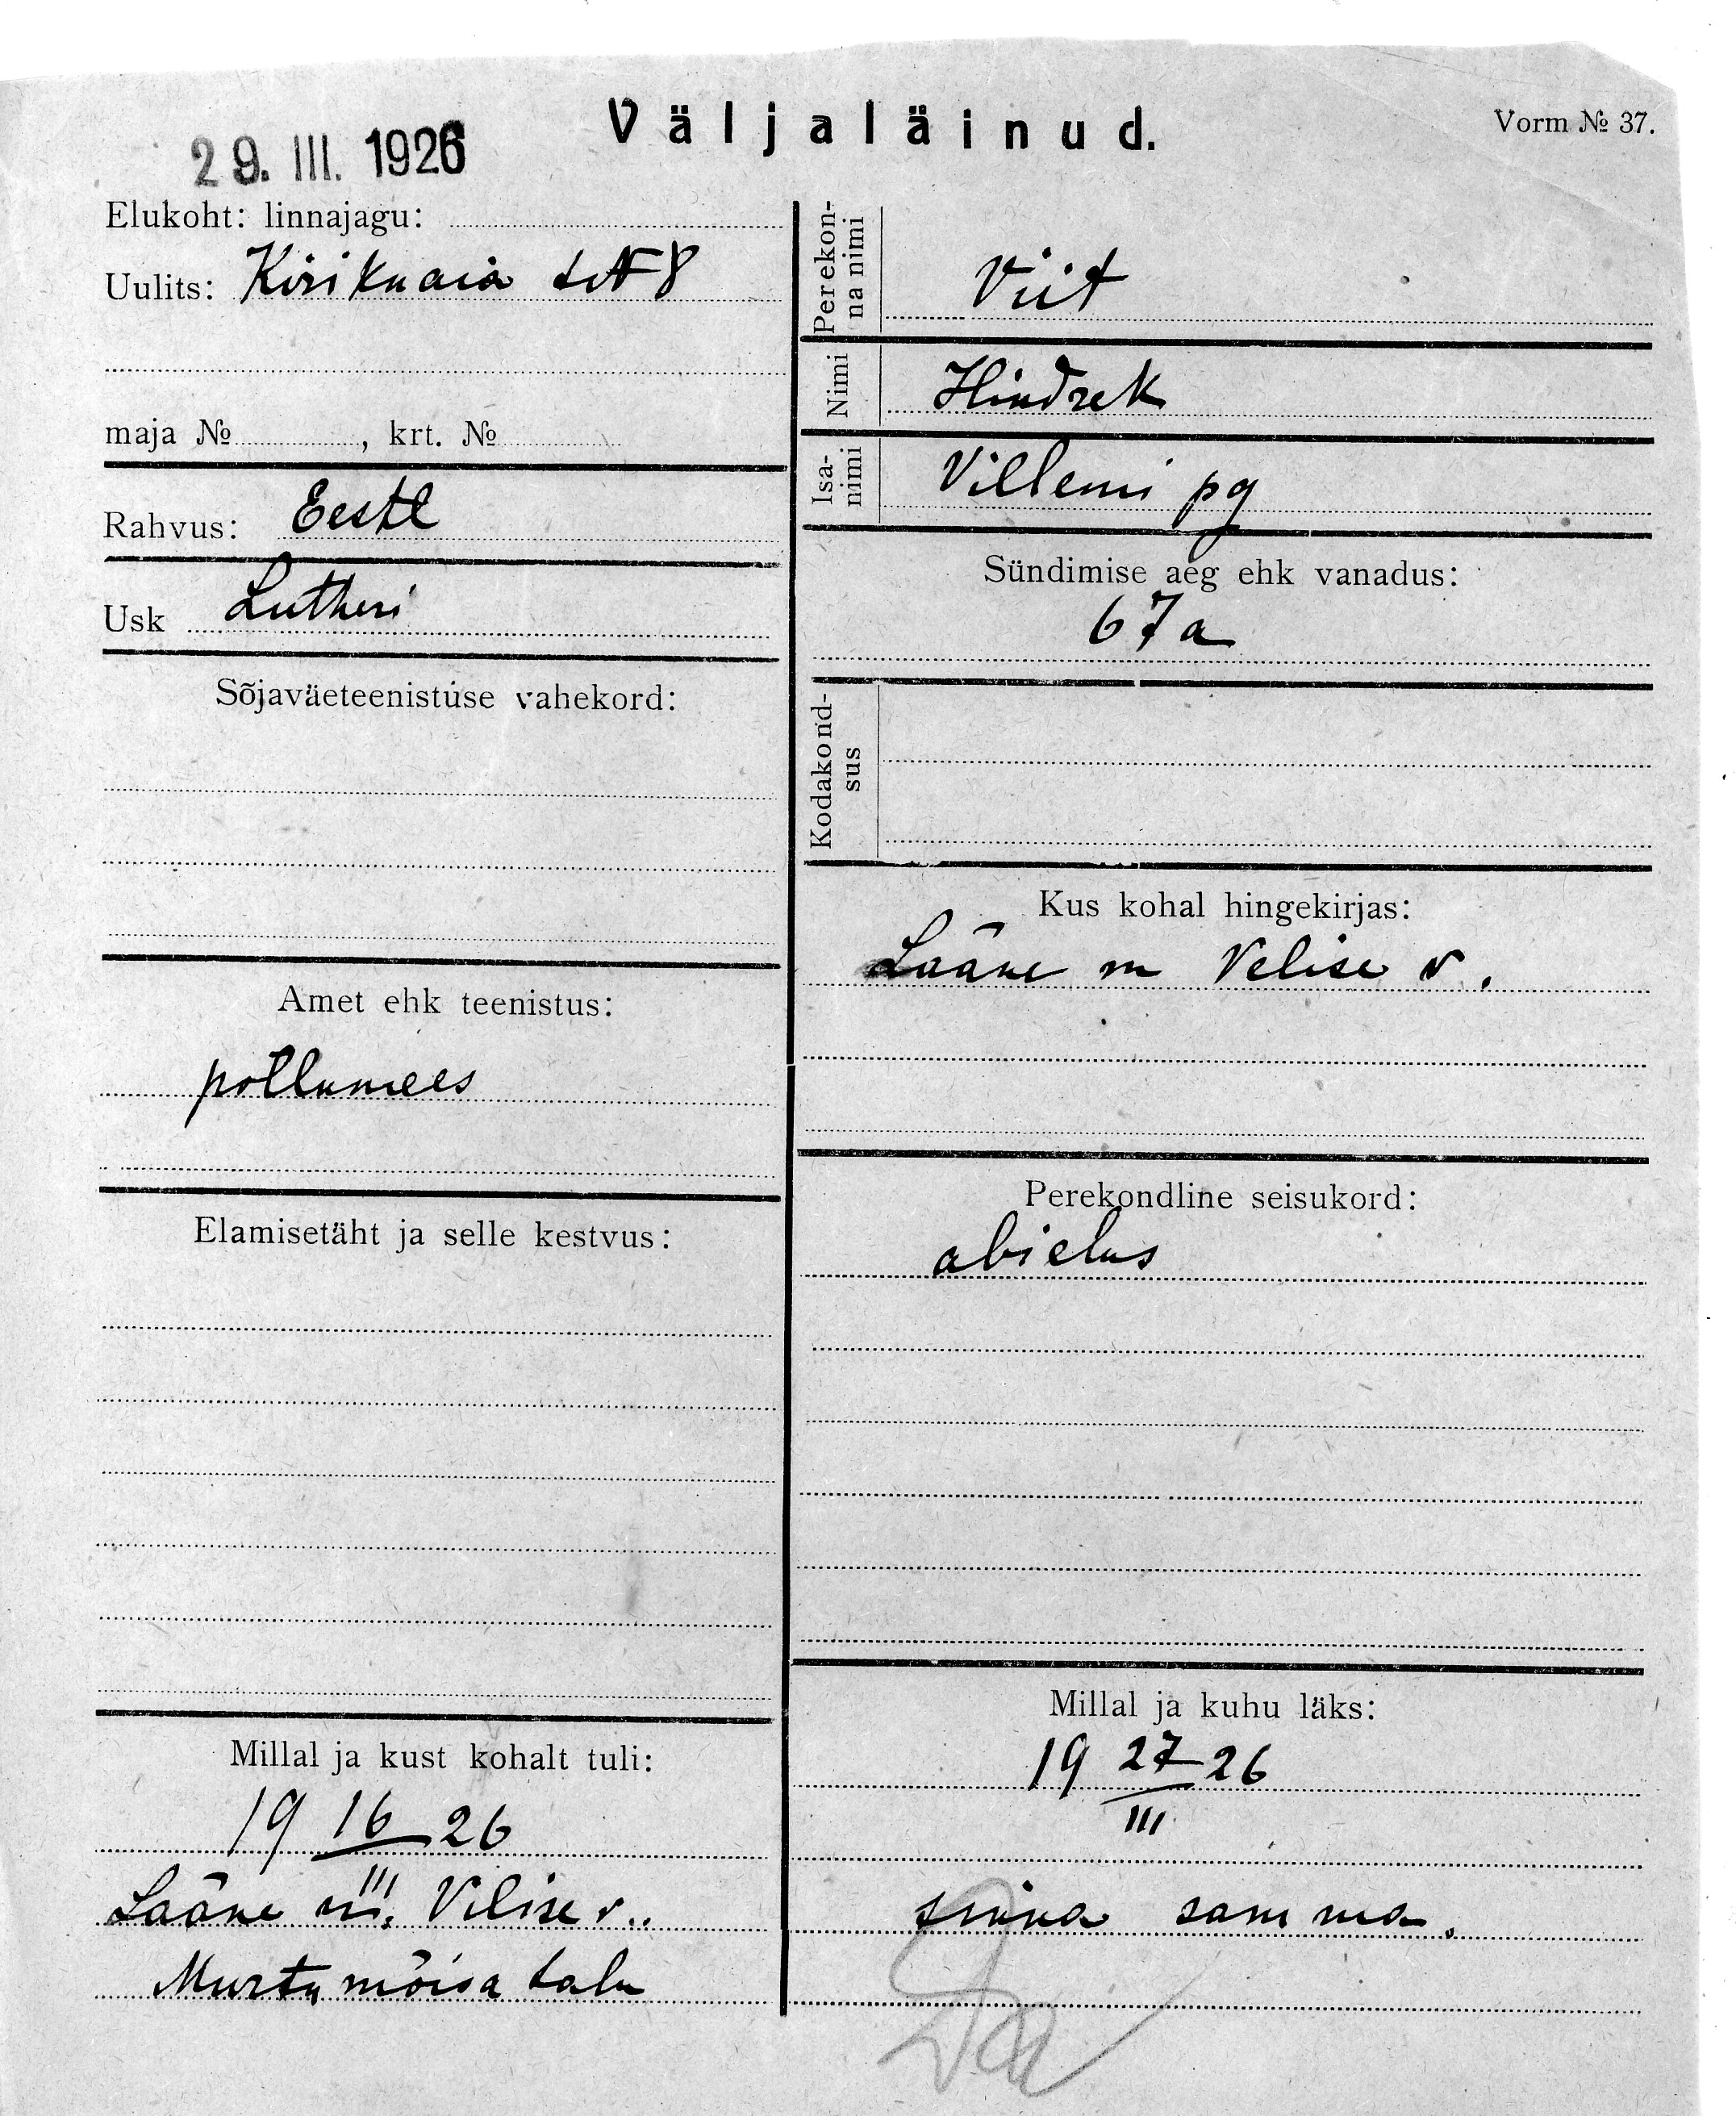 Väljaläinud.
Vorm № 37.
29. III. 1926
Elukoht: linnajagu:
Uulits: Kirikuaia t № 8
maja № , krt. №
Rahvus: Eestl
Usk Lutheri
Sõjaväeteenistuse vahekord:
Amet ehk teenistus:
põllumees
Elamisetäht ja selle kestvus:
Millal ja kust kohalt tuli:
19 16 26
III
Lääne m. Vilise v..
Murtu mõisa talu
Perekon-
na nimi
Viit
Nimi Hindrek
Isa-
nimi
Villemi pg
Sündimise aeg ehk vanadus:
67 a
Kodakond-
sus
Kus kohal hingekirjas:
Lääne m Velise v.
Perekondline seisukord:
abielus
Millal ja kuhu läks:
19 27 26
III
sinna samma.